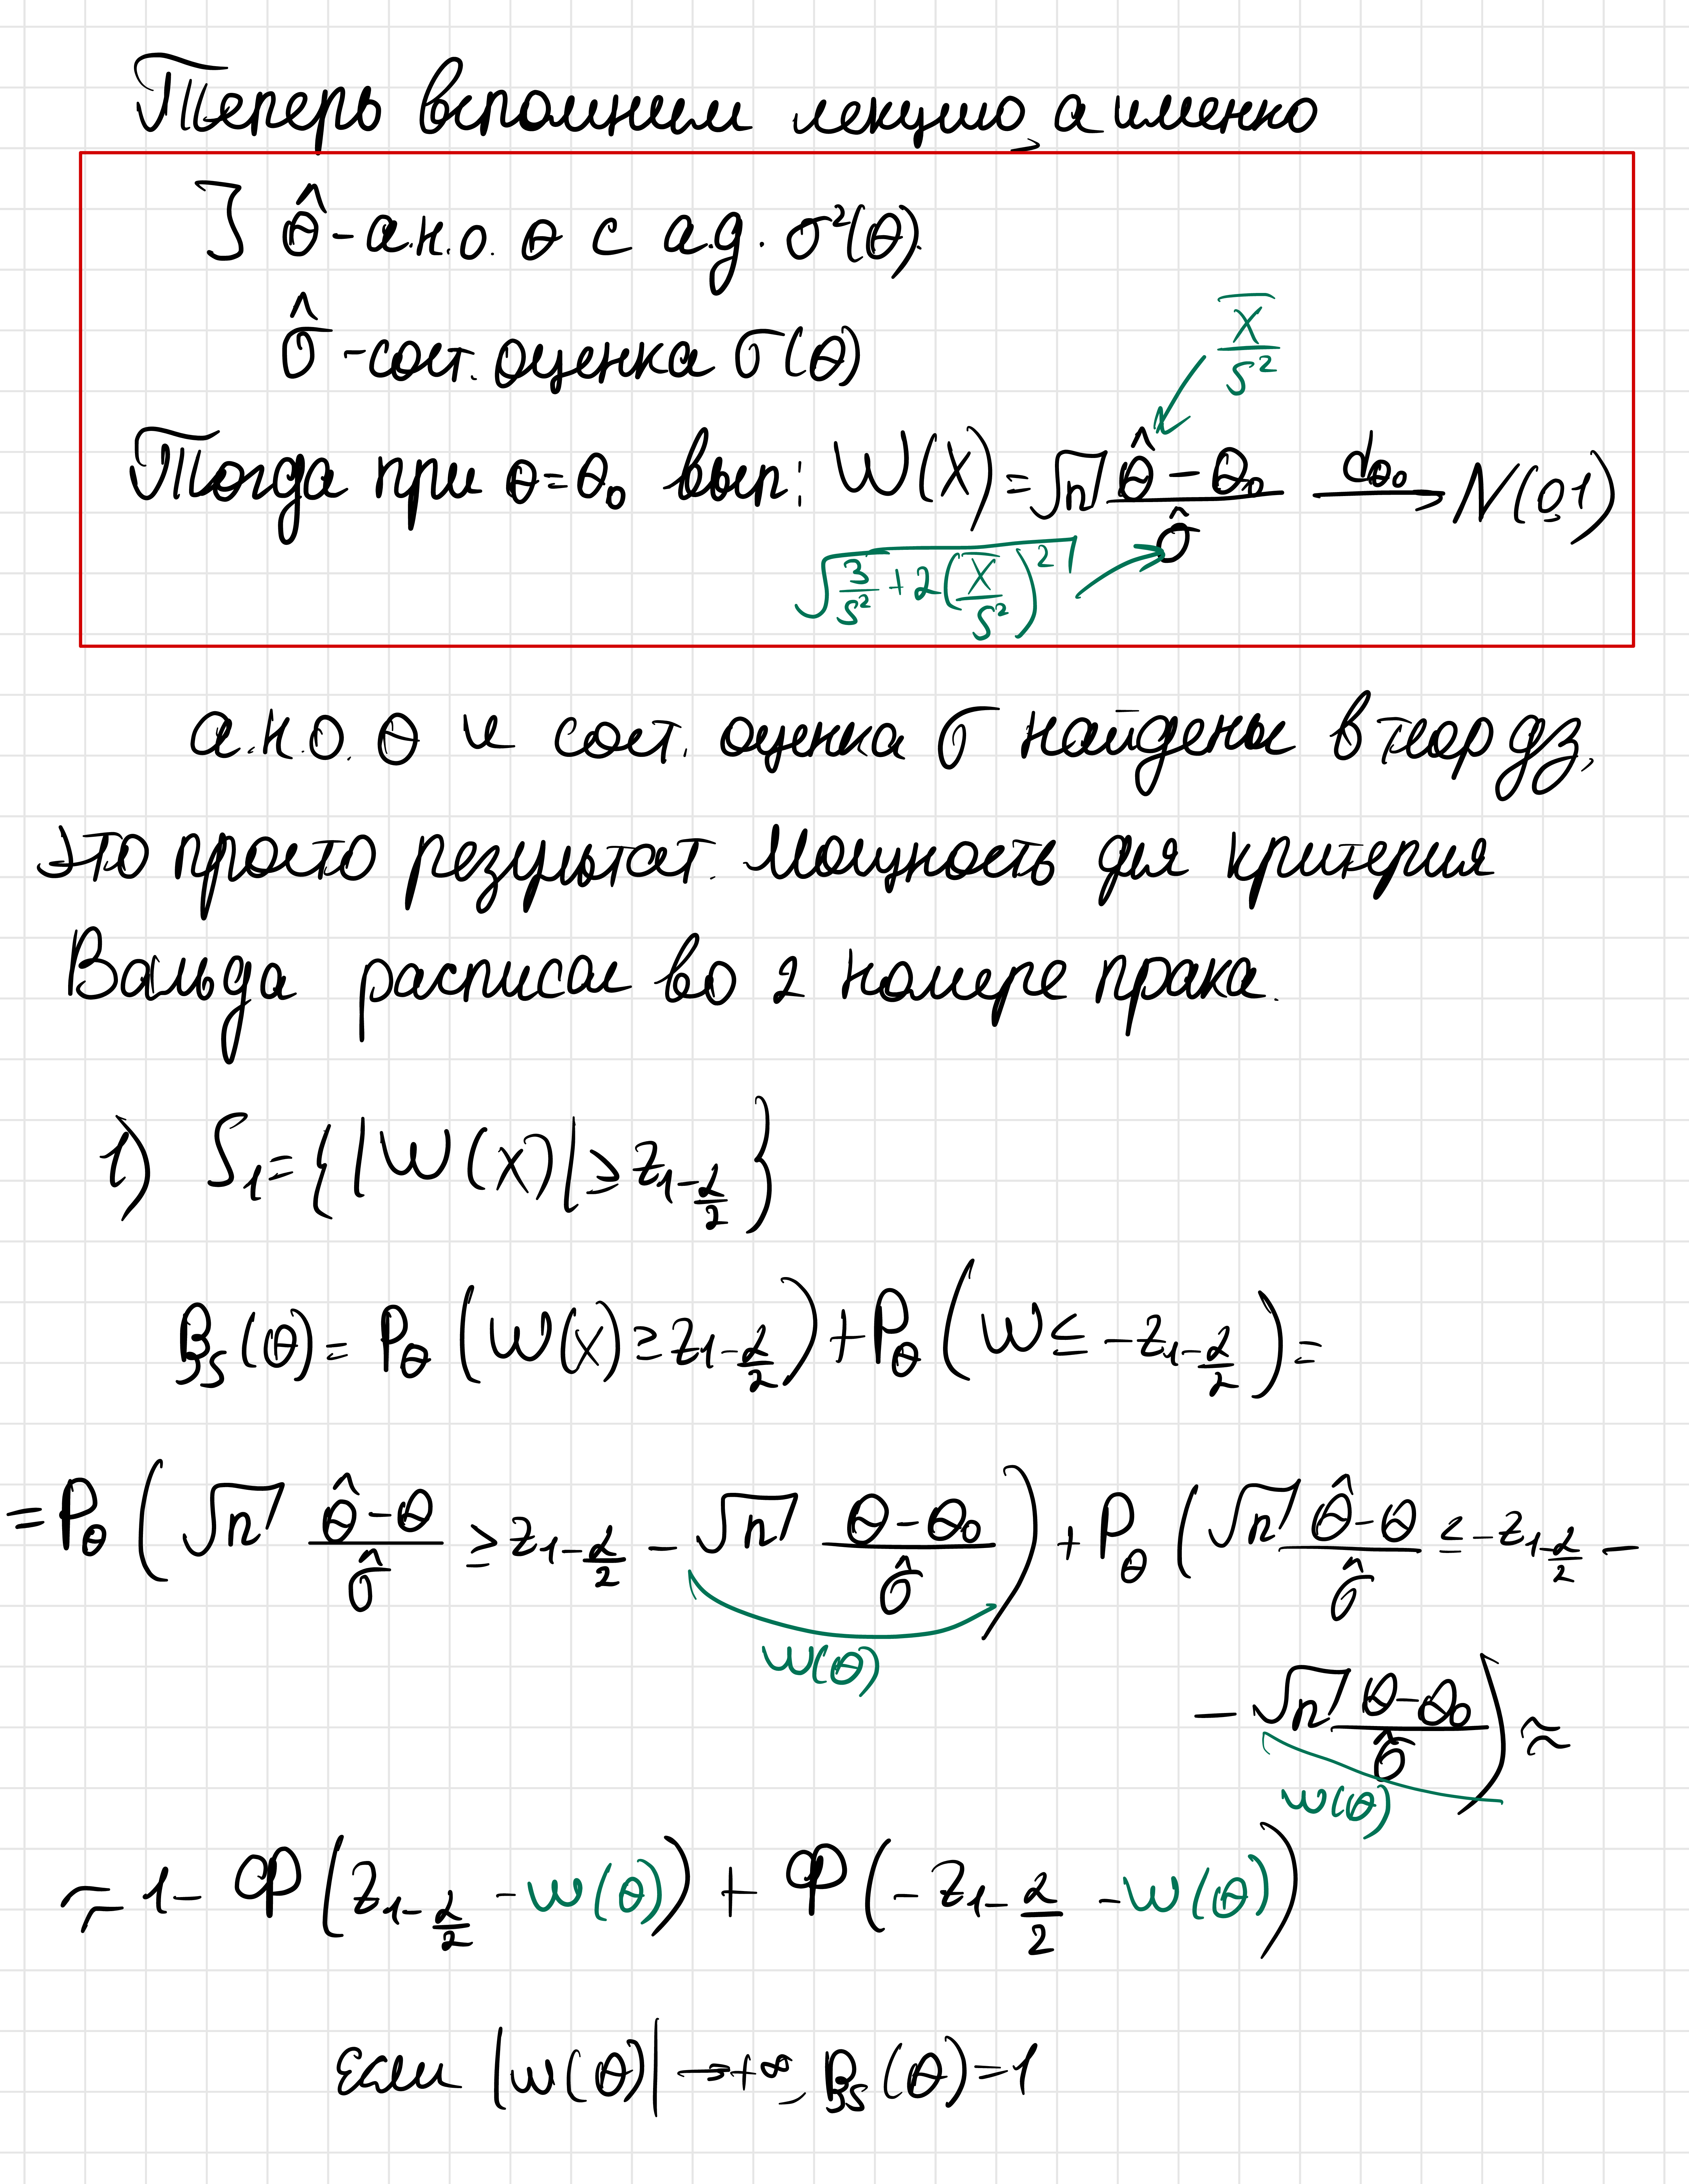 Теперь вспомним лекцию, а именно
] θ̂ - а.н.о. θ с ад. σ²(θ).
σ̂ - сост. оценка σ(θ)
X̄/S²
Тогда при θ=θ₀ вып: W(X) = √n (θ̂ - θ₀)/σ̂ —d_θ₀→ N(0,1)
√(3/S² + 2(X̄/S²)²)
а.н.о. θ и сост. оценка σ найдены в теор дз,
это просто результат. Мощность для критерия
Вальда расписал во 2 номере прака.
1) S₁ = {|W(X)| ≥ z_{1-α/2}}
β_S(θ) = P_θ (W(X) ≥ z_{1-α/2}) + P_θ (W ≤ -z_{1-α/2}) =
= P_θ (√n (θ̂-θ)/σ̂ ≥ z_{1-α/2} - √n (θ-θ₀)/σ̂) + P_θ (√n (θ̂-θ)/σ̂ ≤ -z_{1-α/2} -
w(θ)
- √n (θ-θ₀)/σ̂) ≈
w(θ)
≈ 1 - Φ(z_{1-α/2} - w(θ)) + Φ(-z_{1-α/2} - w(θ))
Если |w(θ)| → +∞, β_S(θ) = 1